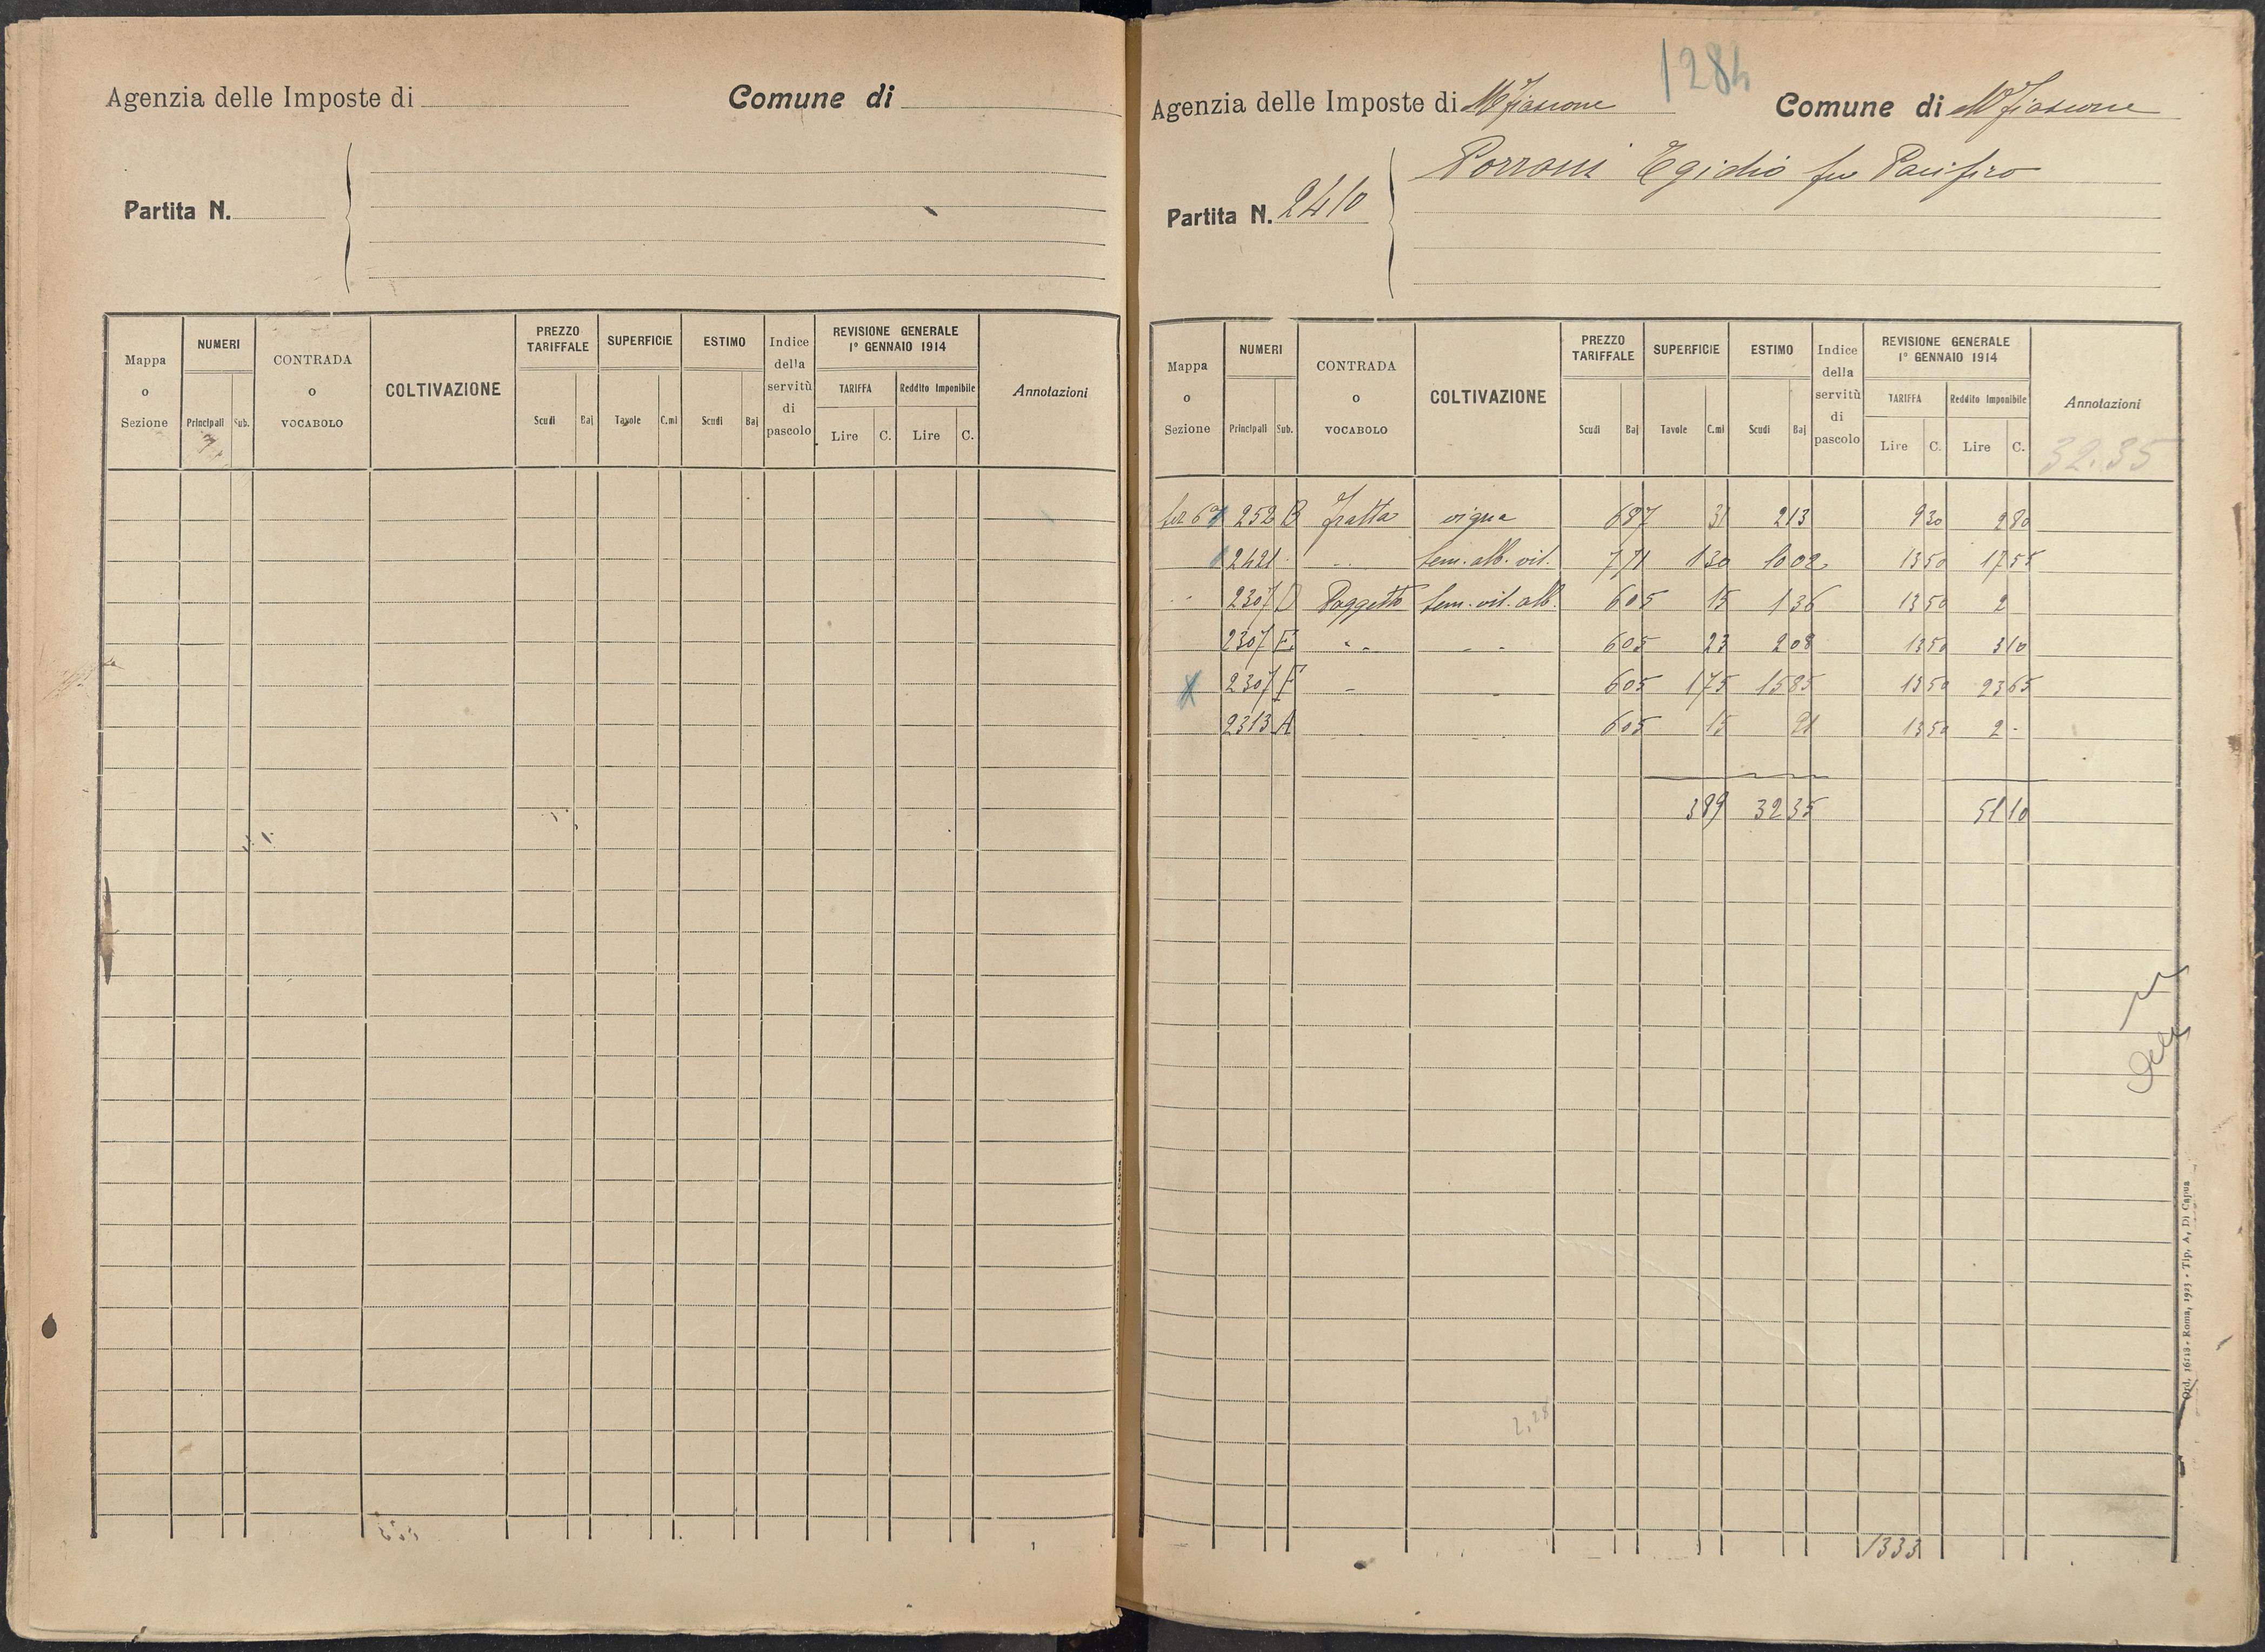 Agenzia delle Imposte di Comune di
Partita N.
Mappa o Sezione NUMERI Principali Sub. CONTRADA o VOCABOLO COLTIVAZIONE PREZZO TARIFFALE Scudi Baj SUPERFICIE Tavole C.mi ESTIMO Scudi Baj Indice della servitù di pascolo REVISIONE GENERALE 1° GENNAIO 1914 TARIFFA Lire C. Reddito Imponibile Lire C. Annotazioni
1
1284
Agenzia delle Imposte di M.Fiascone Comune di M.Fiascone
Porroni Egidio fu Pacifico
Partita N. 2410
Mappa o Sezione NUMERI Principali Sub. CONTRADA o VOCABOLO COLTIVAZIONE PREZZO TARIFFALE Scudi Baj SUPERFICIE Tavole C.mi ESTIMO Scudi Baj Indice della servitù di pascolo REVISIONE GENERALE 1° GENNAIO 1914 TARIFFA Lire C. Reddito Imponibile Lire C. Annotazioni
32.35
Sez 6ª 252 B Fratta vigna 6 87 31 2 13 9 30 2 80
2421 " sem. alb. vit. 7 71 1 30 10 02 13 50 17 55
" 2307 D Poggetto sem. vit. alb. 6 05 15 1 36 13 50 2 -
2307 E " " 6 05 23 2 08 13 50 3 10
2307 F " " 6 05 1 75 15 85 13 50 23 65
2313 A 6 05 15 91 13 50 2 -
3 89 32 35 51 10
2,28
1333
Ord. 16118 - Roma, 1923 - Tip. A. Di Capua